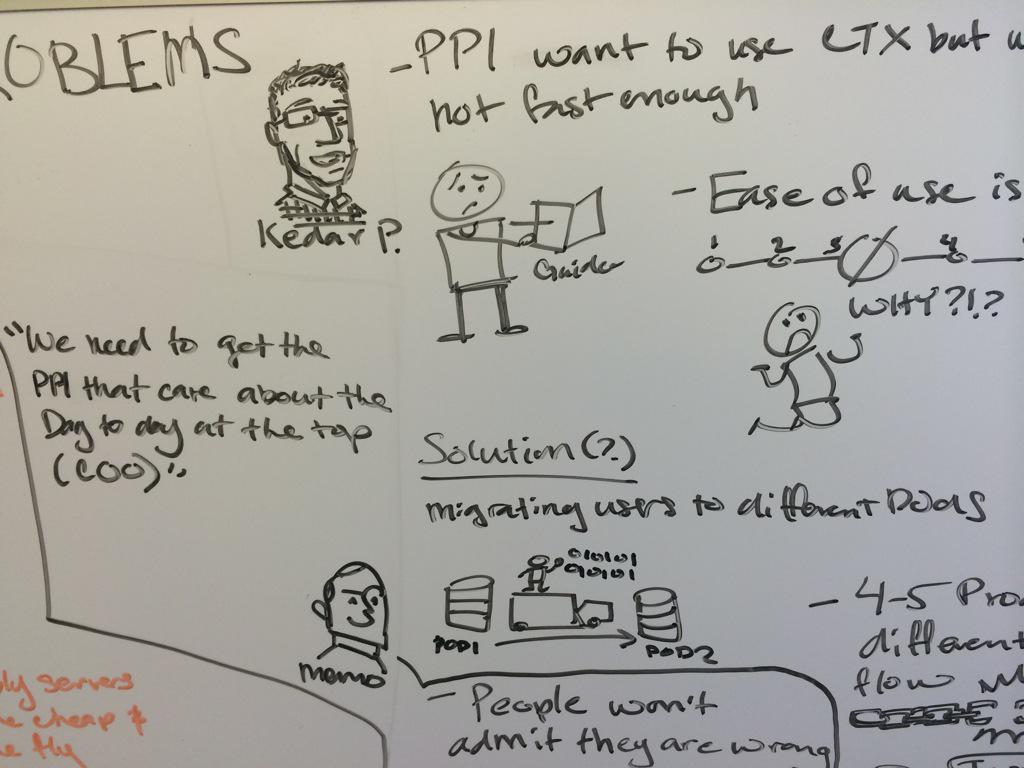 ROBLEMS
Kedar P.
- PPI want to use CTX but
not fast enough
Guide
- Ease of use is
1 2 3 4
WHY?!?
"We need to get the
PPI that care about the
Day to day at the top
(COO)"
Solution(?)
migrating users to different PODs
010101
POD1
POD2
memo
- People won't
admit they are wrong
- 4-5
different
flow
servers
cheap &
fly